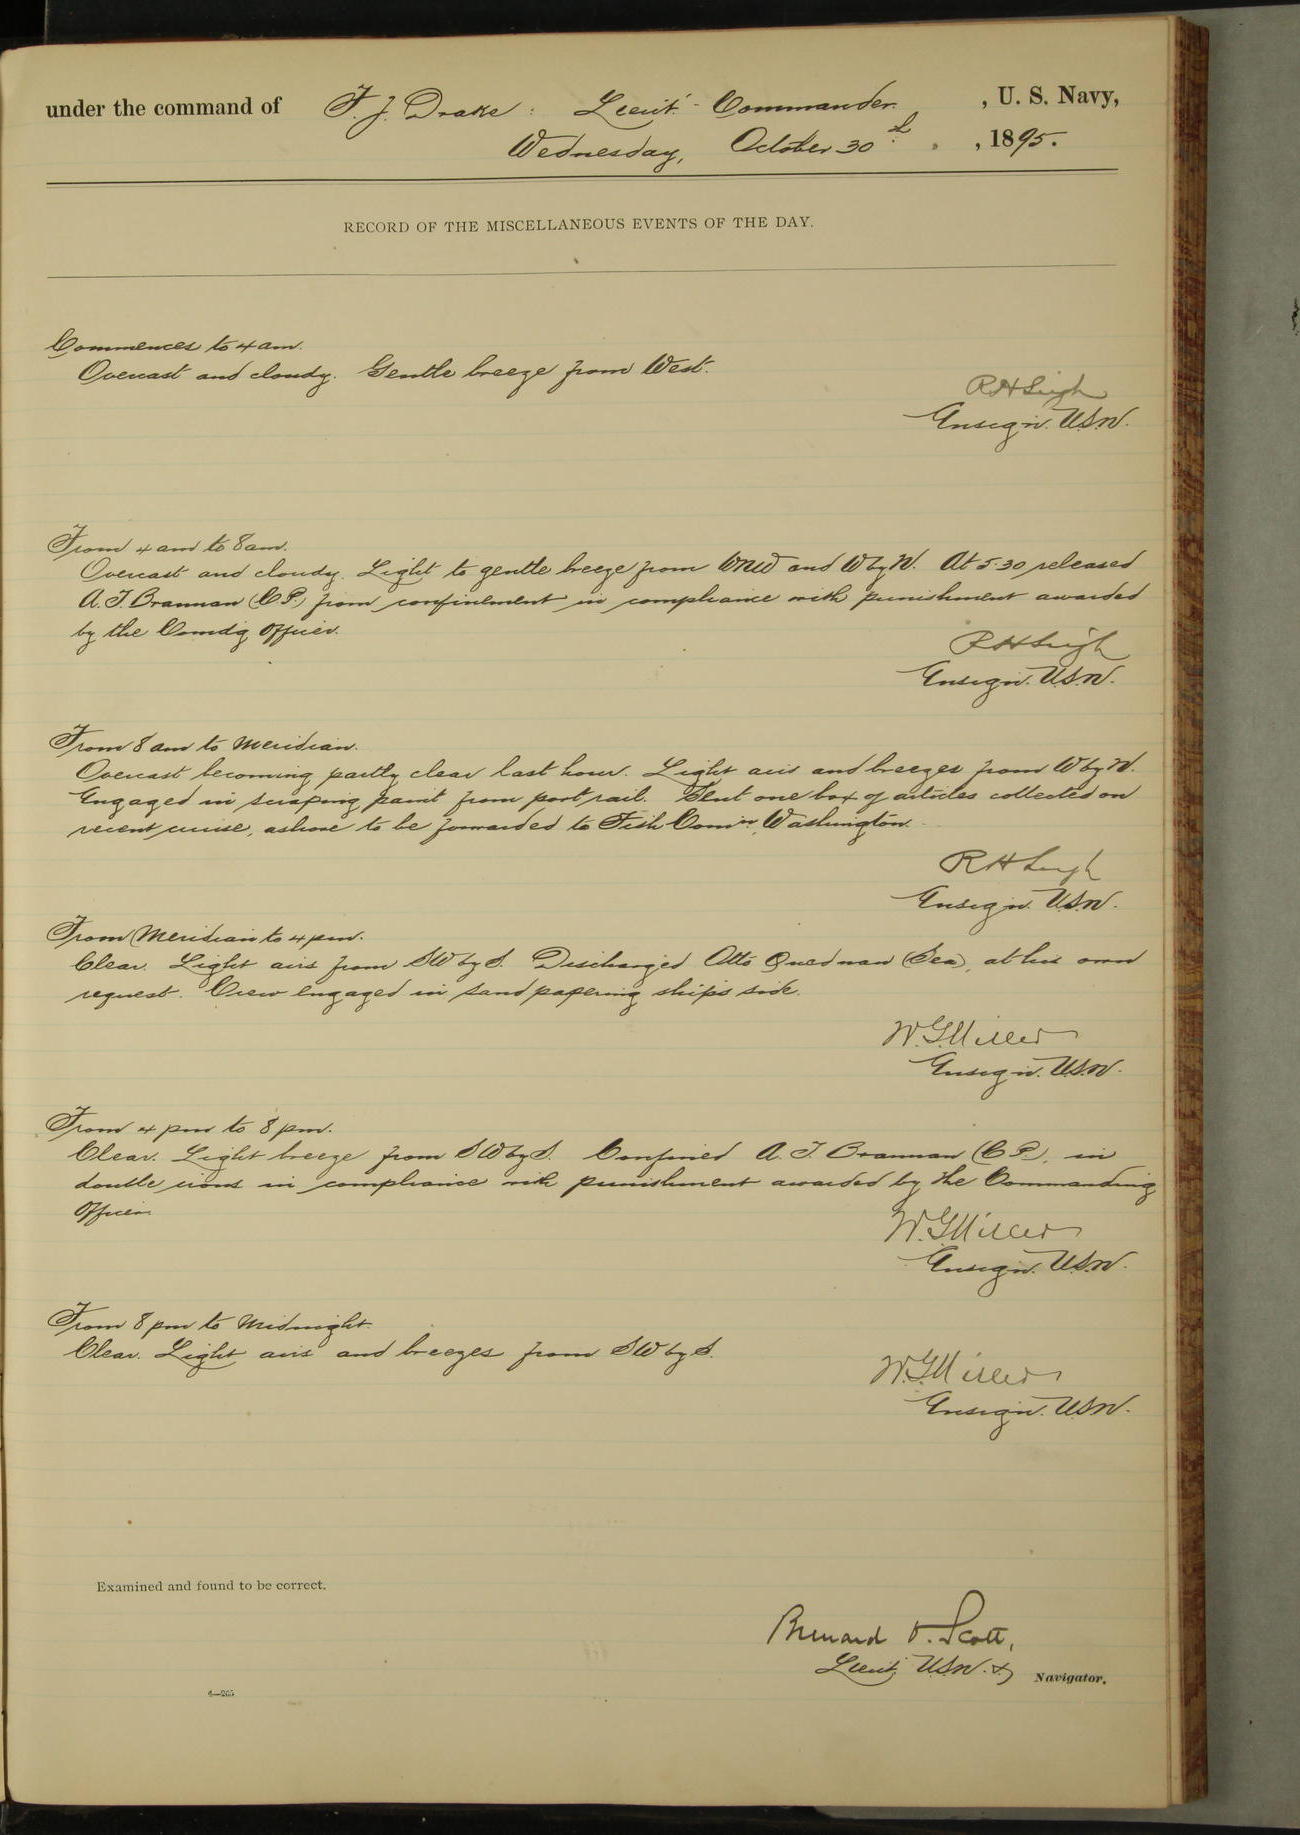 under the command of F. J. Drake : Lieut. - Commander. , U. S. Navy,
Wednesday, October 30th , 1895.
RECORD OF THE MISCELLANEOUS EVENTS OF THE DAY.
Commences to 4 am.
Overcast and cloudy. Gentle breeze from West.
R H Leigh
Ensign. U.S.N.
From 4 am to 8 am.
Overcast and cloudy. Light to gentle breeze from WNW and W by N. At 5.30 released
A. T. Brannan (C.P.) from confinement in compliance with punishment awarded
by the Comdg Officer.
R H Leigh
Ensign. U.S.N.
From 8 am to Meridian.
Overcast becoming partly clear last hour. Light airs and breezes from W by N.
Engaged in scraping paint from port rail. Sent one box of articles collected on
recent cruise, ashore to be forwarded to Fish Com'n, Washington.
R H Leigh
Ensign. U.S.N.
From Meridian to 4 pm.
Clear. Light airs from SW by S. Discharged Otto Quednan (Sea), at his own
request. Crew engaged in sand papering ship's side.
W. G. Miller
Ensign. U.S.N.
From 4 pm to 8 pm.
Clear. Light breeze from SW by S. Confined A. T. Brannan (C.P.), in
double irons in compliance with punishment awarded by the Commanding
Officer
W. G. Miller
Ensign. U.S.N.
From 8 pm to Midnight.
Clear. Light airs and breezes from SW by S.
W. G. Miller
Ensign. U.S.N.
Examined and found to be correct.
Bernard O. Scott,
Lieut. U.S.N. & Navigator.